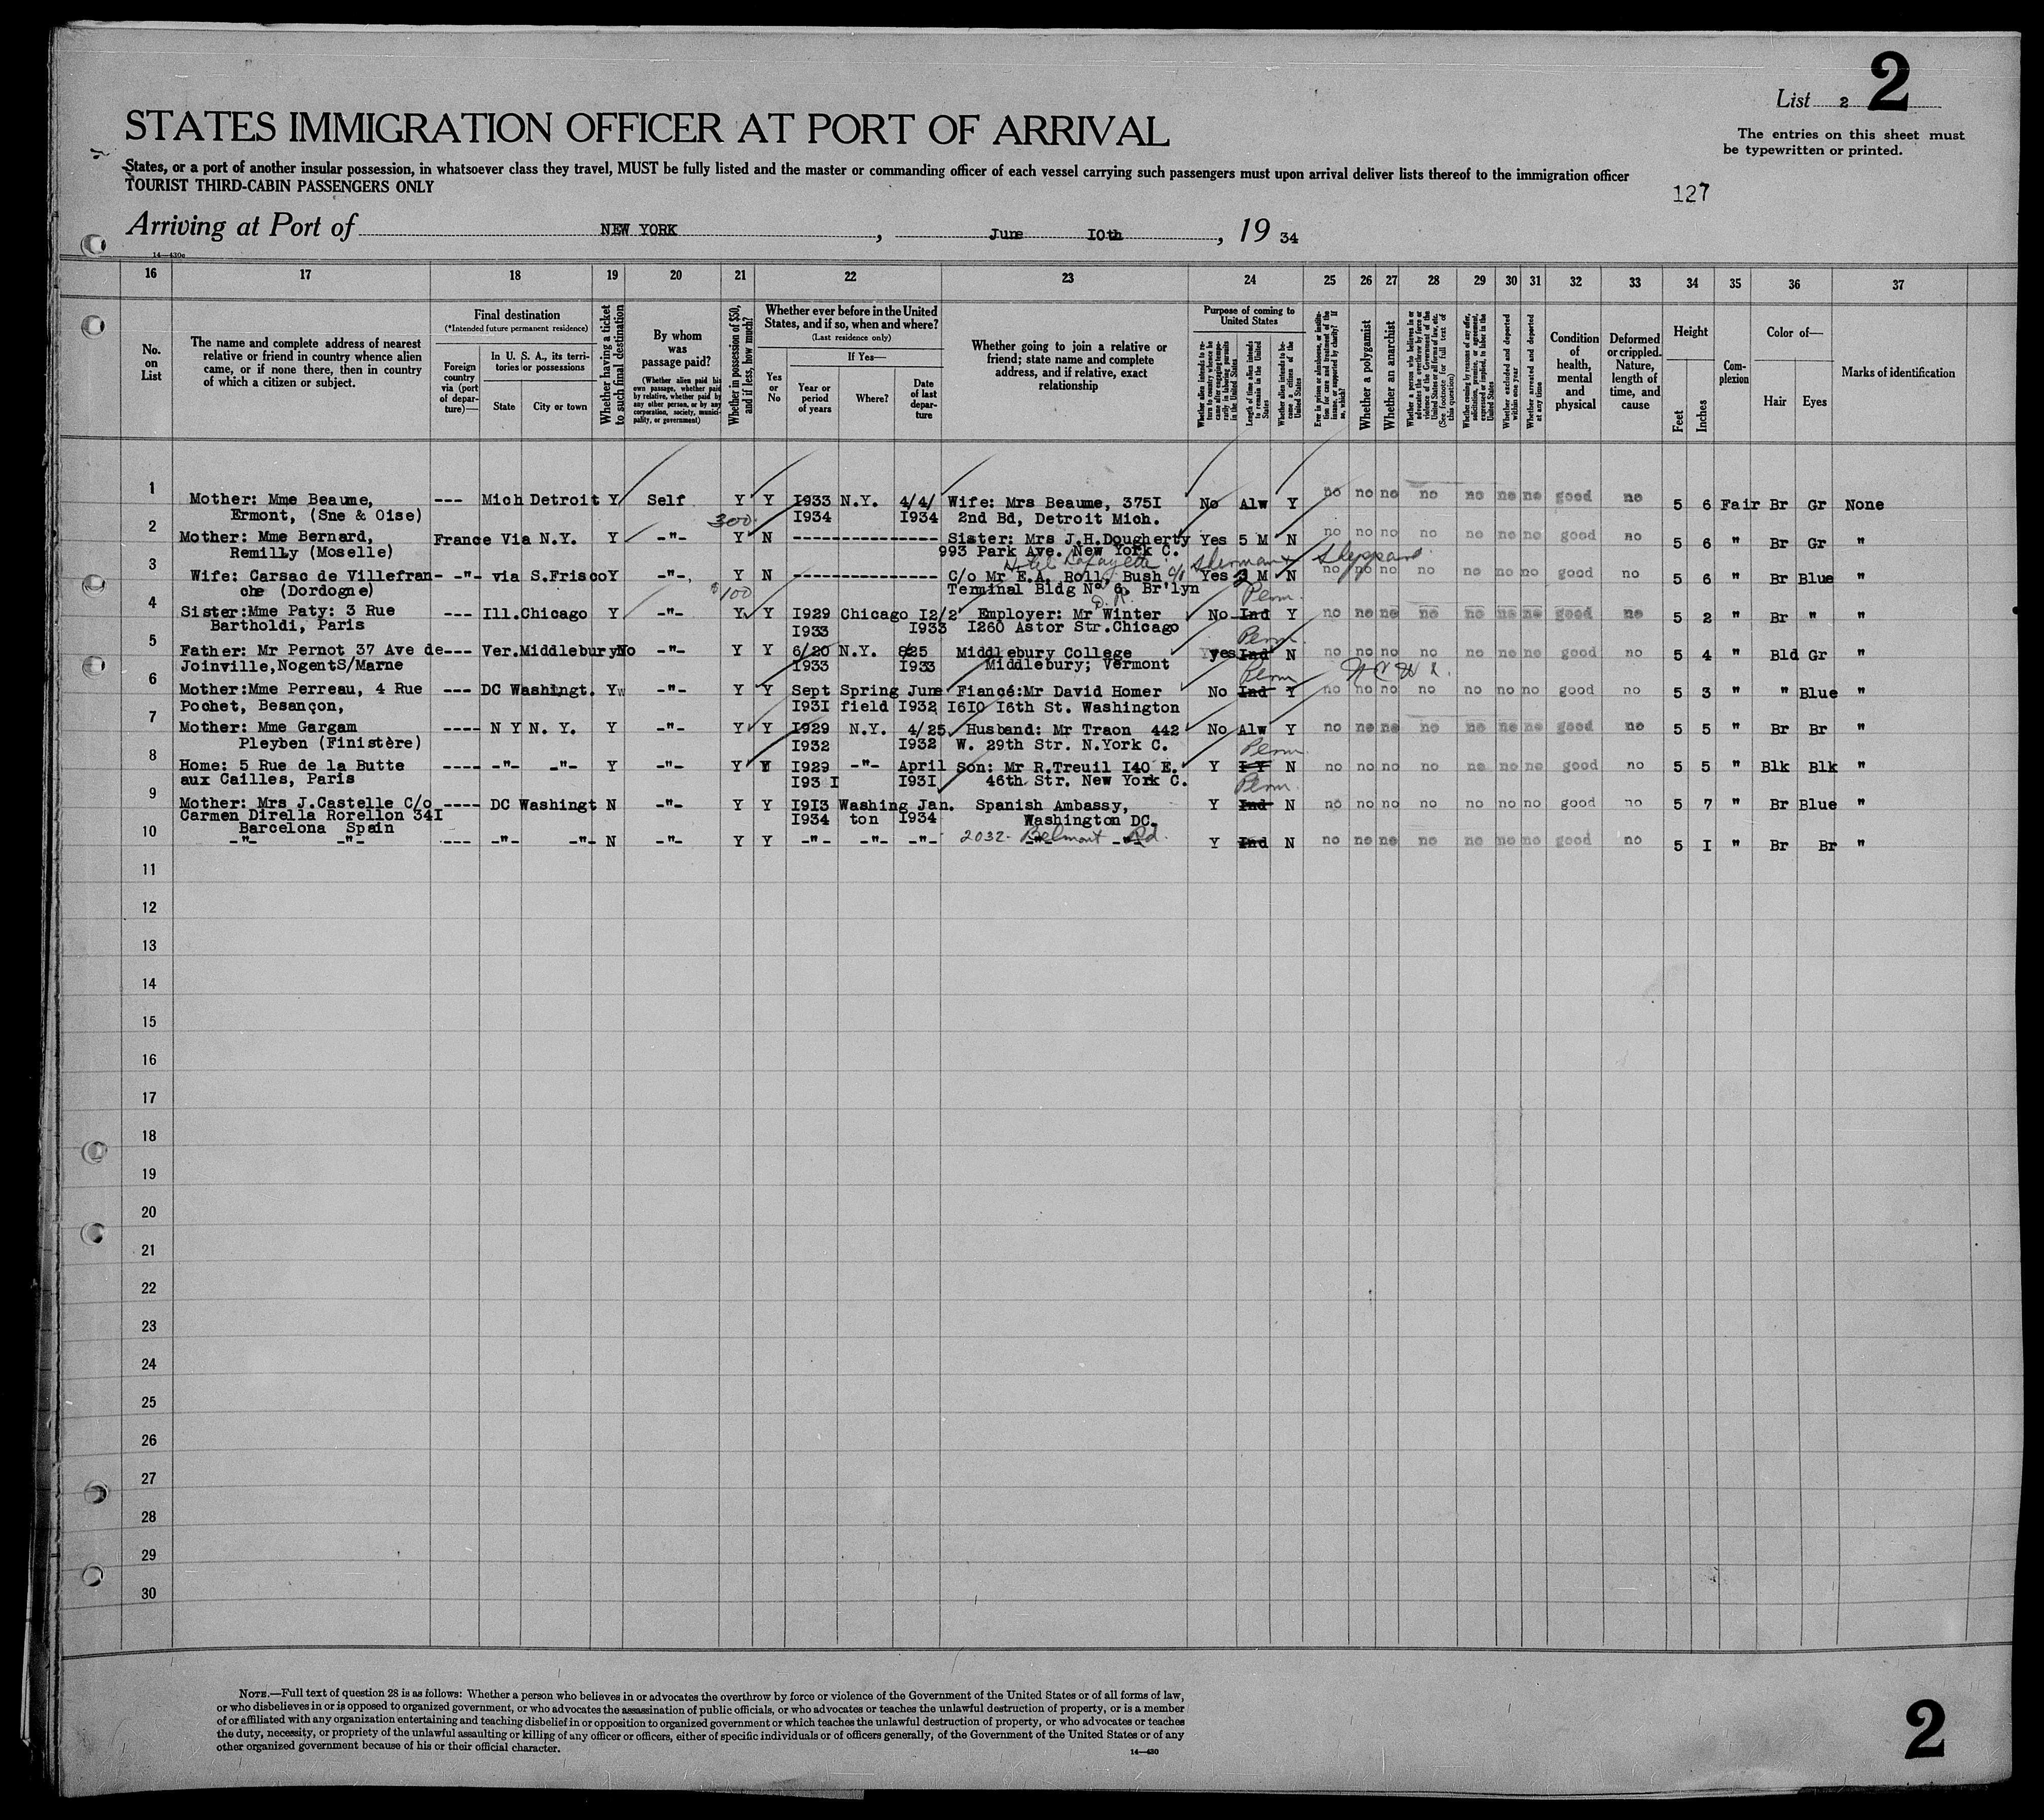 List 2 2
STATES IMMIGRATION OFFICER AT PORT OF ARRIVAL
The entries on this sheet must
be typewritten or printed.
States, or a port of another insular possession, in whatsoever class they travel, MUST be fully listed and the master or commanding officer of each vessel carrying such passengers must upon arrival deliver lists thereof to the immigration officer
TOURIST THIRD-CABIN PASSENGERS ONLY
127
Arriving at Port of NEW YORK, June 10th, 19 34
14—430c
16 17 18 19 20 21 22 23 24 25 26 27 28 29 30 31 32 33 34 35 36 37
No. on List
The name and complete address of nearest relative or friend in country whence alien came, or if none there, then in country of which a citizen or subject.
Final destination
(*Intended future permanent residence)
Foreign country via (port of departure)—
In U. S. A., its territories or possessions
State
City or town
Whether having a ticket to such final destination
By whom was passage paid?
(Whether alien paid his own passage, whether paid by relative, whether paid by any other person, or by any corporation, society, municipality, or government)
Whether in possession of $50, and if less, how much?
Whether ever before in the United States, and if so, when and where?
(Last residence only)
Yes or No
If Yes—
Year or period of years
Where?
Date of last departure
Whether going to join a relative or friend; state name and complete address, and if relative, exact relationship
Purpose of coming to United States
Length of time alien intends to remain in the United States
Whether alien intends to become a citizen of the United States
Whether a polygamist
Whether an anarchist
Whether excluded and deported within one year
Whether arrested and deported at any time
Condition of health, mental and physical
Deformed or crippled. Nature, length of time, and cause
Height
Feet
Inches
Complexion
Color of—
Hair
Eyes
Marks of identification
1 Mother: Mme Beaume, --- Mich Detroit Y Self Y Y 1933 N.Y. 4/4/ Wife: Mrs Beaume, 375I No Alw Y no no no no no no no good no 5 6 Fair Br Gr None
Ermont, (Sne & Oise) I934 I934 2nd Bd, Detroit Mich.
300
2 Mother: Mme Bernard, France Via N.Y. Y -"- Y N --------------- Sister: Mrs J.H.Dougherty Yes 5 M N no no no no no no no good no 5 6 " Br Gr "
Remilly (Moselle) 993 Park Ave. New York C.
Hotel Lafayette c/o Sherman & Sheppard
3 Wife: Carsac de Villefran- -"- via S.Frisco Y -"- Y N --------------- C/o Mr E.A. Roll, Bush Yes M N no no no no no no no good no 5 6 " Br Blue "
che (Dordogne) $100 Terminal Bldg Nº 6, Br'lyn
Perm.
4 Sister:Mme Paty: 3 Rue --- Ill.Chicago Y -"- Y Y I929 Chicago I2/2 Employer: Mr Winter No Ind Y no no no no no no no good no 5 2 " Br " "
Bartholdi, Paris I933 I933 I260 Astor Str.Chicago
Perm.
5 Father: Mr Pernot 37 Ave de --- Ver.Middlebury No -"- Y Y 6/20 N.Y. 825 Middlebury College yes Ind N no no no no no no no good no 5 4 " Bld Gr "
Joinville,NogentS/Marne I933 I933 Middlebury; Vermont
Perm
6 Mother:Mme Perreau, 4 Rue --- DC Washingt. Y -"- Y Y Sept Spring June Fiancé:Mr David Homer No Ind Y no no no no no no no good no 5 3 " " Blue "
Pochet, Besançon, I93I field I932 I6I0 I6th St. Washington
7 Mother: Mme Gargam ---- N Y N. Y. Y -"- Y Y I929 N.Y. 4/25 Husband: Mr Traon 442 No Alw Y no no no no no no no good no 5 5 " Br Br "
Pleyben (Finistère) I932 I932 W. 29th Str. N.York C.
Perm.
8 Home: 5 Rue de la Butte ---- -"- -"- Y -"- Y Y I929 -"- April Son: Mr R.Treuil I40 E. Y I Y N no no no no no no no good no 5 5 " Blk Blk "
aux Cailles, Paris I93 I I93I 46th Str. New York C.
Perm.
9 Mother: Mrs J.Castelle C/o ---- DC Washingt N -"- Y Y I9I3 Washing Jan. Spanish Ambassy, Y Ind N no no no no no no no good no 5 7 " Br Blue "
Carmen Dirella Rorellon 34I I934 ton I934 Washington DC.
Barcelona Spain
10 -"- -"- --- -"- -"- N -"- Y Y -"- -"- -"- 2032 Belmont Rd. Y Ind N no no no no no no no good no 5 I " Br Br "
11
12
13
14
15
16
17
18
19
20
21
22
23
24
25
26
27
28
29
30
NOTE.—Full text of question 28 is as follows: Whether a person who believes in or advocates the overthrow by force or violence of the Government of the United States or of all forms of law,
or who disbelieves in or is opposed to organized government, or who advocates the assassination of public officials, or who advocates or teaches the unlawful destruction of property, or is a member
of or affiliated with any organization entertaining and teaching disbelief in or opposition to organized government or which teaches the unlawful destruction of property, or who advocates or teaches
the duty, necessity, or propriety of the unlawful assaulting or killing of any officer or officers, either of specific individuals or of officers generally, of the Government of the United States or of any
other organized government because of his or their official character.
14—430
2